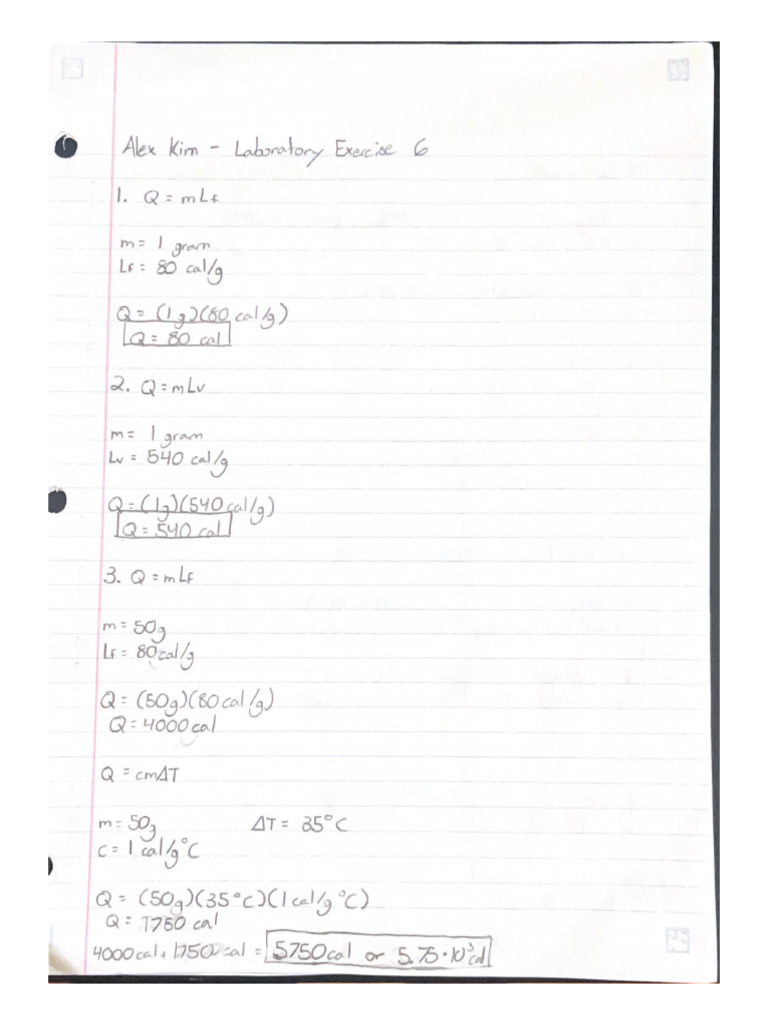 Alex Kim - Laboratory Exercise 6
1. Q = mLf
m = 1 gram
Lf = 80 cal/g
Q = (1g)(80 cal/g)
Q = 80 cal
2. Q = mLv
m = 1 gram
Lv = 540 cal/g
Q = (1g)(540 cal/g)
Q = 540 cal
3. Q = mLf
m = 50g
Lf = 80 cal/g
Q = (50g)(80 cal/g)
Q = 4000 cal
Q = cmΔT
m = 50g ΔT = 35°C
c = 1 cal/g°C
Q = (50g)(35°C)(1 cal/g °C)
Q = 1750 cal
4000 cal + 1750 cal = 5750 cal or 5.75·10³ cal